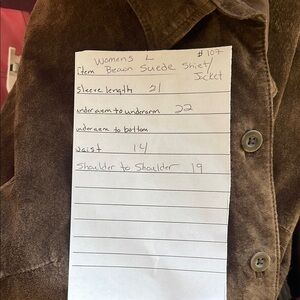 Womens L #107
Item Beaon Suede Shiet/
Jacket
Sleeve length 21
underarm to underarm 22
underarm to bottom
waist 14
Shoulder to Shoulder 19